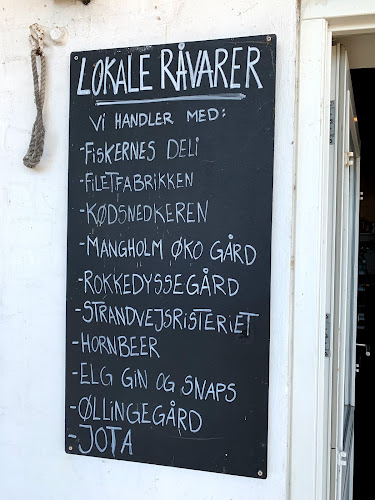 LOKALE RÅVARER
VI HANDLER MED:
-FISKERNES DELI
-FILETFABRIKKEN
-KØDSNEDKEREN
-MANGHOLM ØKO GÅRD
-ROKKEDYSSEGÅRD
-STRANDVEJSRISTERIET
-HORNBEER
-ELG GIN OG SNAPS
-ØLLINGEGÅRD
-JOTA